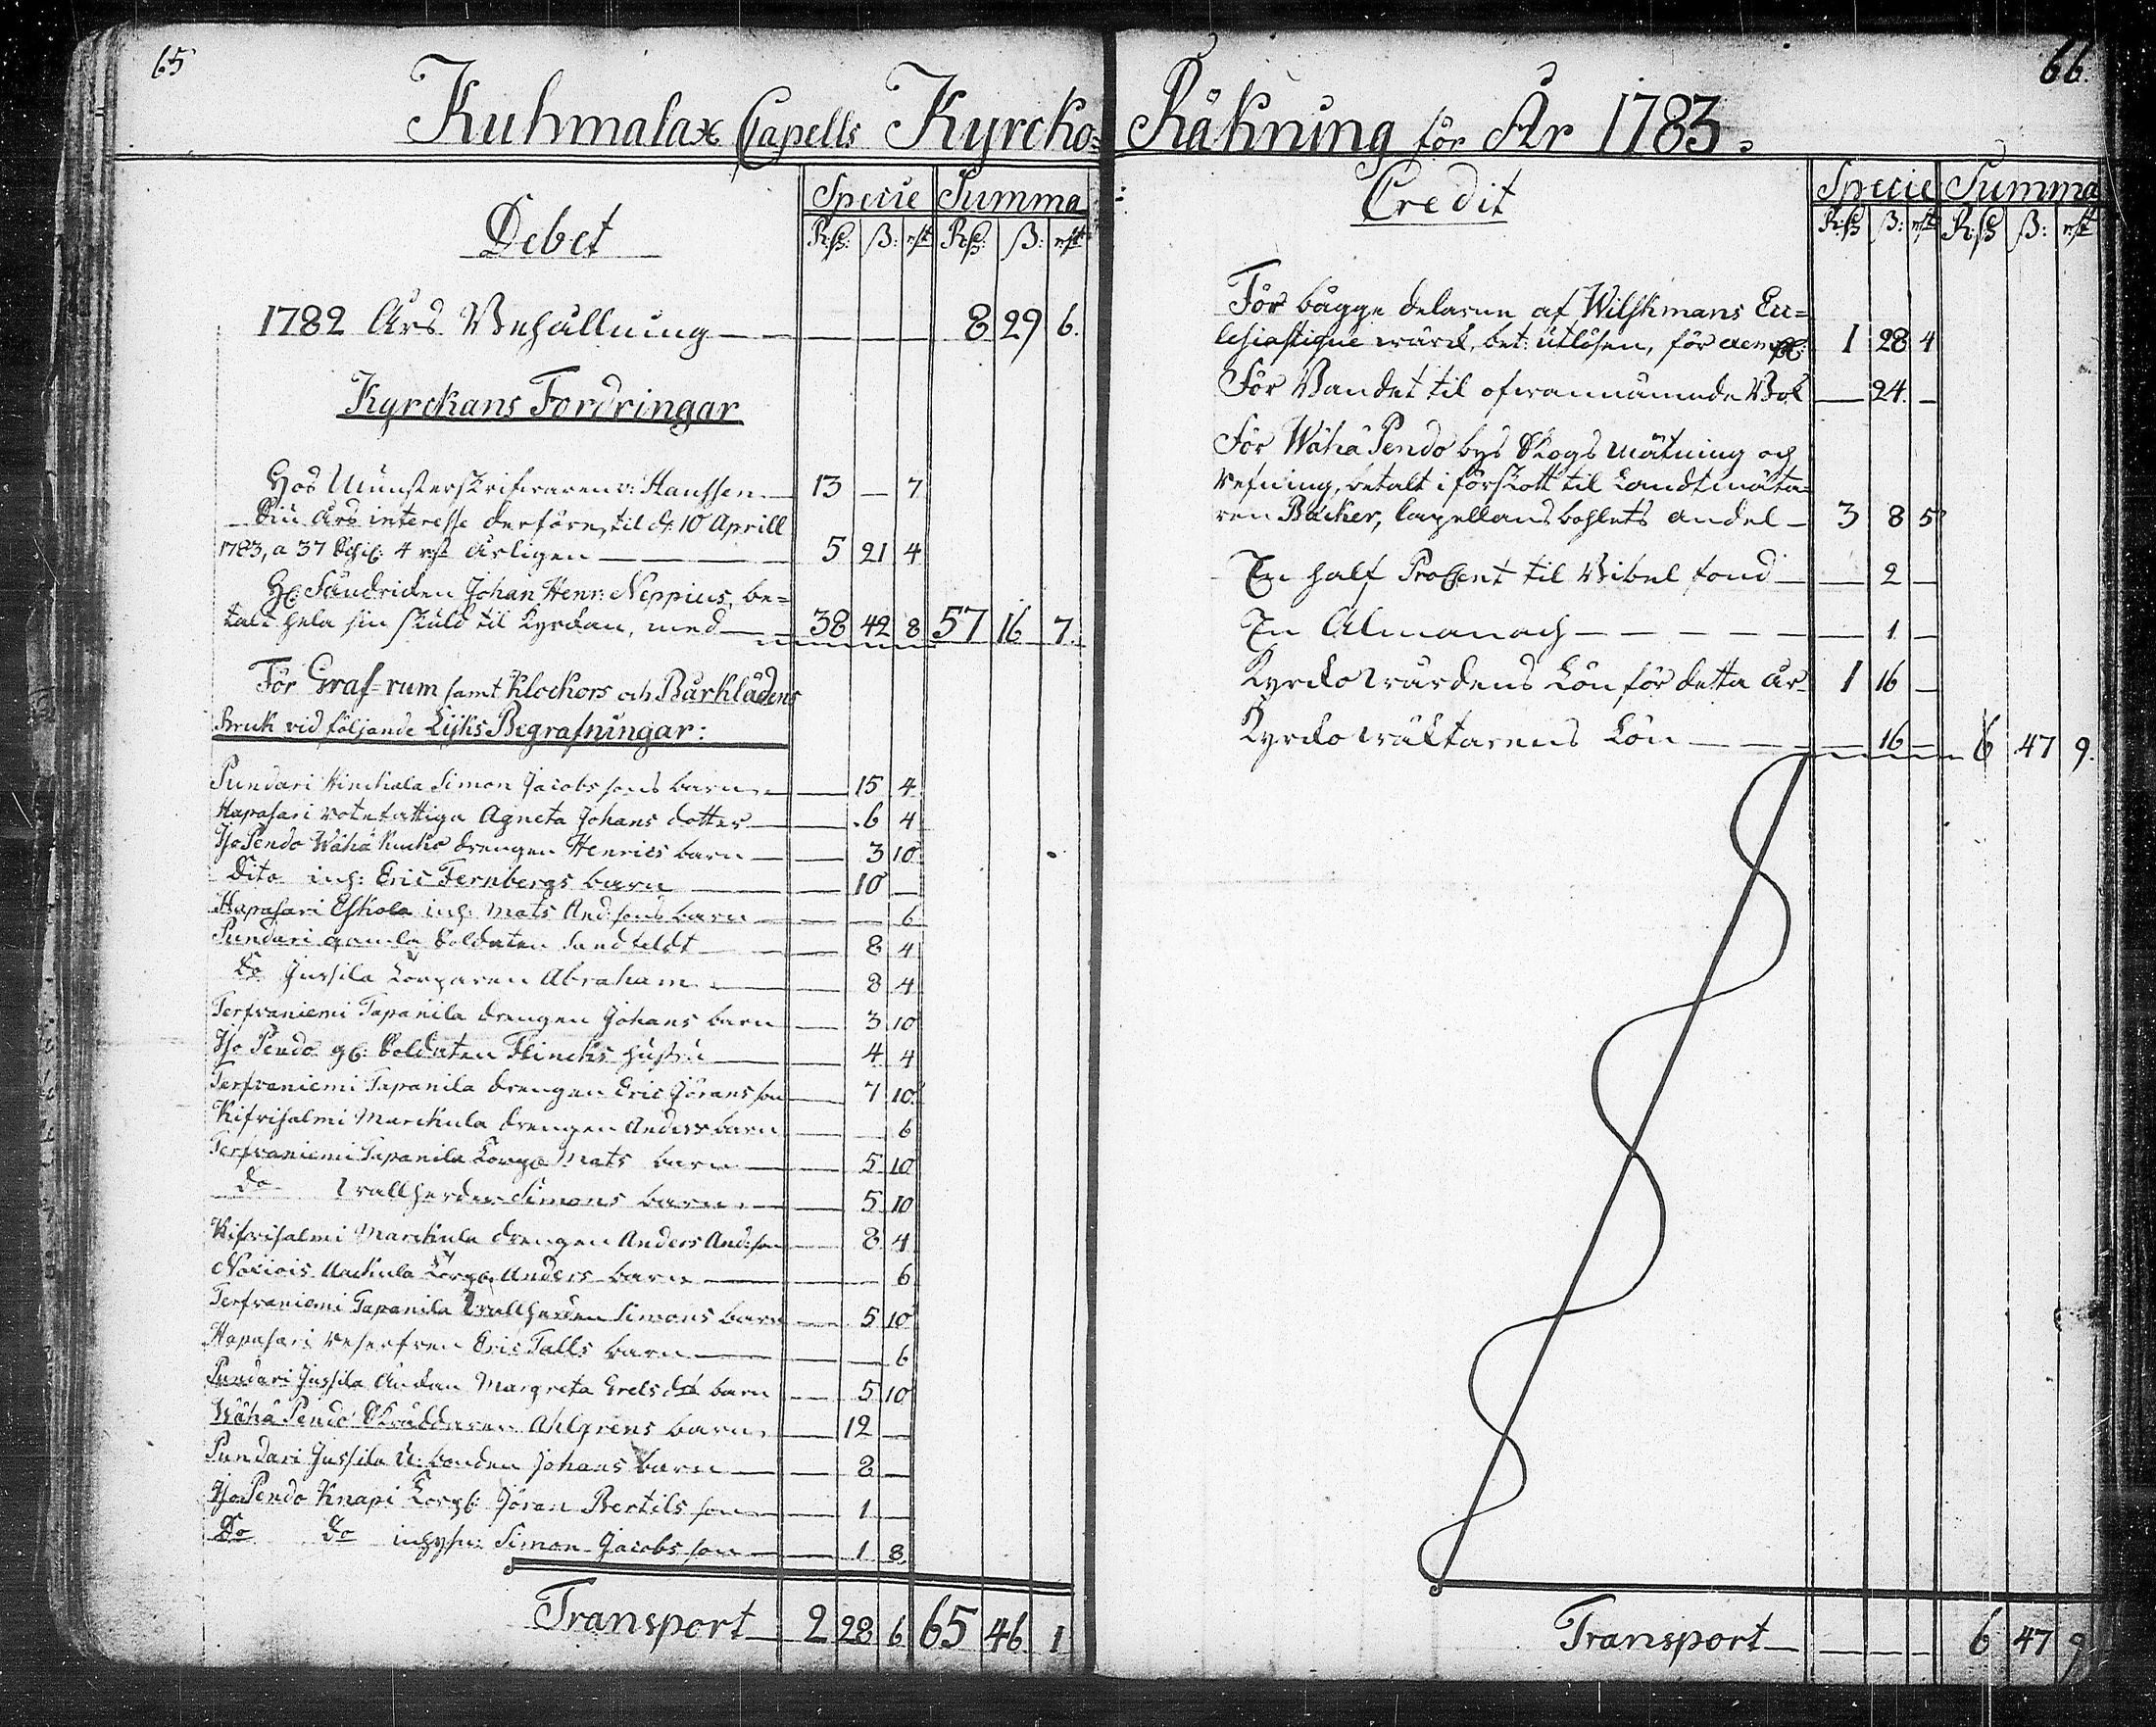 65
Kuhmalax Capells Kyrcko-
Debet
Specie Summa
R:ß: ß: rst R:ß: ß: rst
1782 Års Behållning — — — — 8 29 6.
Kyrckans Fordringar
Hos Munsterskrifvaren v: Hanssen — 13 — 7
Års interesse derföre, til d: 10 Aprill
1783, a 37 Sch: 4 rst årligen — 5 21 4
Johan Henr: Neppius, be=
talt hela sin skuld til Kyrckan, med — 38 42 8 57 16 7.
För Graf=rum samt Klockors och Bårklädens
Bruk vid följande Lijks Begrafningar:
Pundari Hinckala Simon Jacobs sons barn — — 15 4
Hapasari rotefattiga Agneta Johans dotter — — 6 4
Iso Pendo Wähä Kucko drengen Henrics barn — — 3 10
Dito inh: Eric Fernbergs barn — — 10 —
Hapasari Eskola inh: Mats And:sons barn — — — 6
Pundari gamla Soldaten Sandfeldt — — 8 4
Do Jussila Torparen Abraham — — 8 4
Terfvaniemi Tapanila drengen Johans barn — — 3 10
Iso Pendo gl: Soldaten Flincks hustru — — 4 4
Terfvaniemi Tapanila drengen Eric Jörans son — — 7 10
Kifvisalmi Marckula drengen Anders barn — — — 6
Terfvaniemi Tapanila Torp: Mats barn — — 5 10
Do Vallherden Simons barn — — 5 10
Kifvisalmi Marckula drengen Anders And:son — — 8 4
Anders barn — — — 6
Terfvaniemi Tapanila Vallherden Simons barn — — 5 10
Hapasari Eric Talls barn — — — 6
Pundari Jussila Änckan Margreta Grels dot barn — — 5 10
Wähä Pendo Skräddaren Ahlgrens barn — — 12 —
Pundari Jussila U: bonden Johans barn — — 8 —
Iso Pendo Knapi Torp: Jöran Bertils son — — 1 —
Do Do inhysn: Simon Jacobs son — — 1 8
Transport — 2 28 6 65 46 1
66.
Räkning för År 1783.
Credit
Specie Summa
R:ß ß: rst R:ß ß: rst
För bägge delarne af Wilskmans Ecc=
lesiastique wärck, bet: utlösen, för 1 28 4
För Bandet til ofvannämnde Bok — 24. —
För Wähä Pendo bys Skogs mätning och
refning, betalt i förskott til Landtmäta=
ren Bäcker, Capellans bohlets andel — 3 8 5
En half ProCent til Bibel fond — — 2 —
En Almanach — — — — — 1 —
Kyrcko wärdens Lön för detta år — 1 16 —
Kyrcko wäktarens Lön — — — 16 — 6 47 9.
Transport — — — — 6 47 9